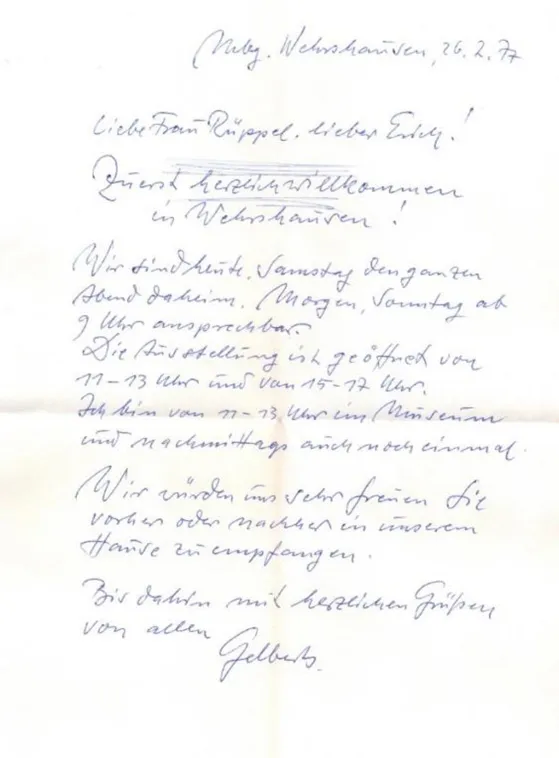 Mbg. Wehrshausen, 26.2.77
Liebe Frau Rüppel, lieber Erich!
Zuerst herzlich willkommen
in Wehrshausen!
Wir sind heute, Samstag den ganzen
Abend daheim. Morgen, Sonntag ab
9 Uhr ansprechbar.
Die Ausstellung ist geöffnet von
11-13 Uhr und von 15-17 Uhr.
Ich bin von 11-13 Uhr im Museum
und nachmittags auch noch einmal.
Wir würden uns sehr freuen Sie
vorher oder nachher in unserem
Hause zu empfangen.
Bis dahin mit herzlichen Grüßen
von allen